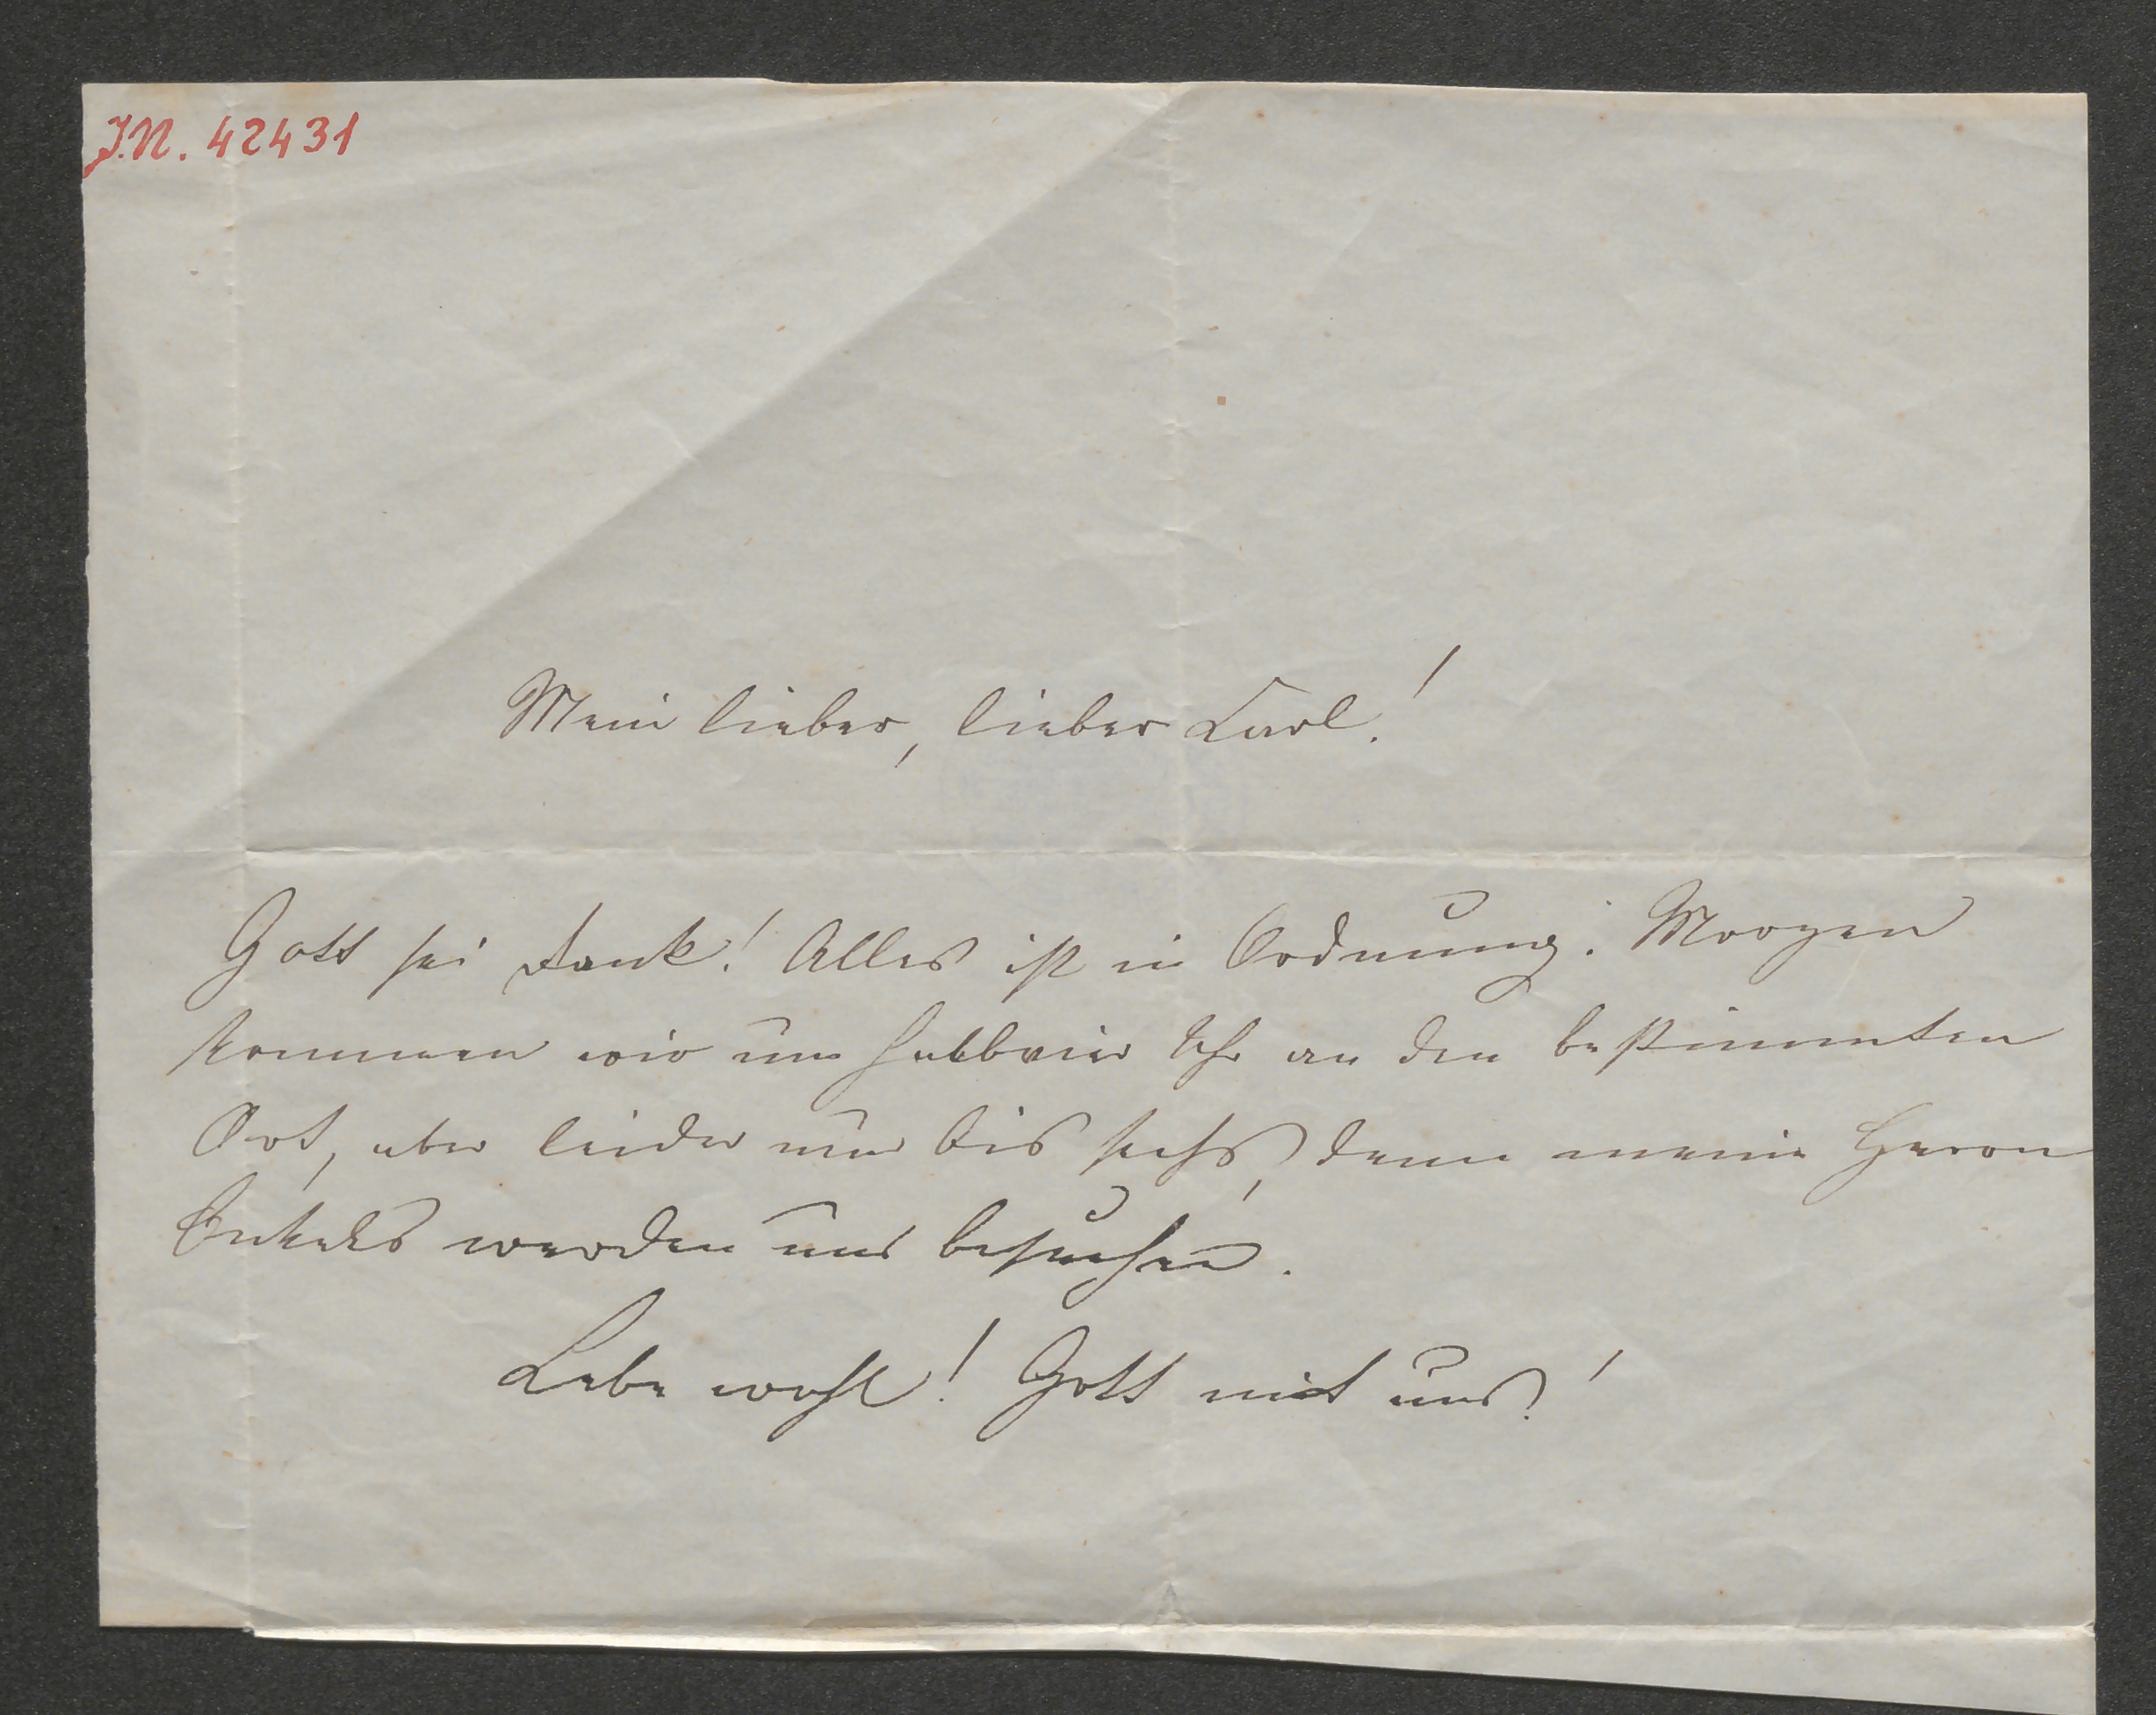 J.N. 42431
Mein lieber, lieber Karl!
Gott sei Dank! Alles ist in Ordnung. Morgen
kommen wir um halbvier Uhr an den bestimmten
Ort, aber leider nur bis sechs, denn meine Herrn
Onkels werden uns besuchen.
Lebe wohl! Gott mit uns!